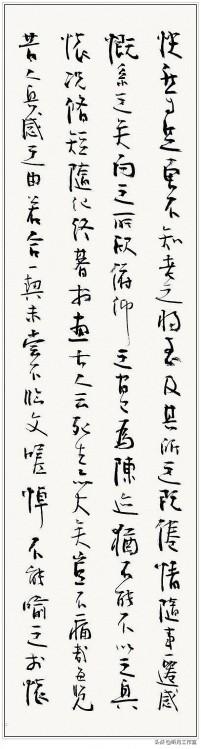 快然自足曾不知老之將至及其所之既倦情隨事遷感
慨系之矣向之所欣俯仰之間以為陳迹猶不能不以之興
懷況脩短隨化終期於盡古人云死生亦大矣豈不痛哉每覽
昔人興感之由若合一契未嘗不臨文嗟悼不能喻之於懷
头条@明月工作室